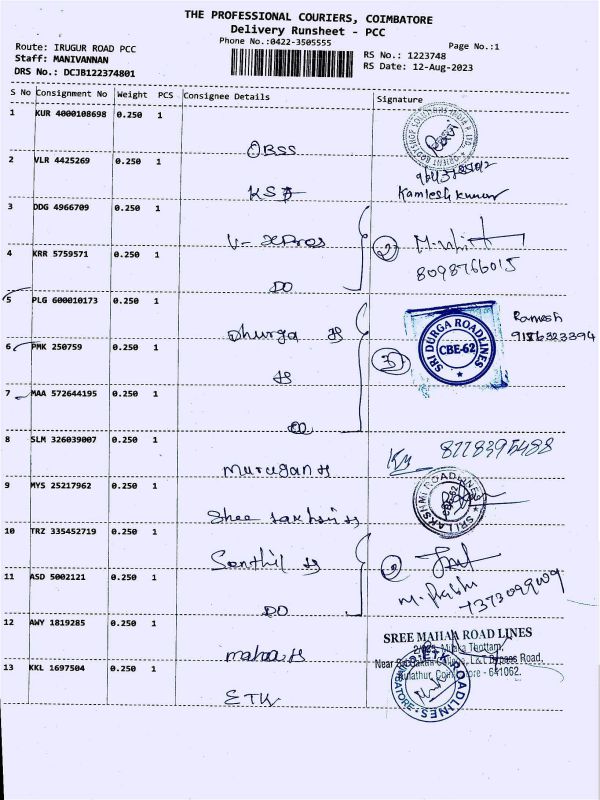 THE PROFESSIONAL COURIERS, COIMBATORE
Delivery Runsheet - PCC
Phone No.:0422-3505555
Page No.:1
Route: IRUGUR ROAD PCC
Staff: MANIVANNAN
DRS No.: DCJB122374801
RS No.: 1223748
RS Date: 12-Aug-2023
S No Consignment No Weight PCS Consignee Details Signature
1 KUR 4000108698 0.250 1
OBSS
2 VLR 4425269 0.250 1
Kamlesh kumar
3 DDG 4966709 0.250 1
V- Xpres
8098766015
4 KRR 5759571 0.250 1
DO
5 PLG 600010173 0.250 1
Dhurga
Ramesh
SRI DURGA ROADLINES
CBE-62
6 PMK 250759 0.250 1
7 MAA 572644195 0.250 1
8 SLM 326039007 0.250 1
8778395488
Murugan
9 MYS 25217962 0.250 1
SRI LAKSHMI ROADLINES
Shree
10 TRZ 335452719 0.250 1
Senthil
11 ASD 5002121 0.250 1
M. Prabhu
DO
12 AWY 1819285 0.250 1
SREE MAHAA ROAD LINES
Thottam,
L&T Bypass Road,
641062.
maha
13 KKL 1697504 0.250 1
ETK ROADLINES
ETK